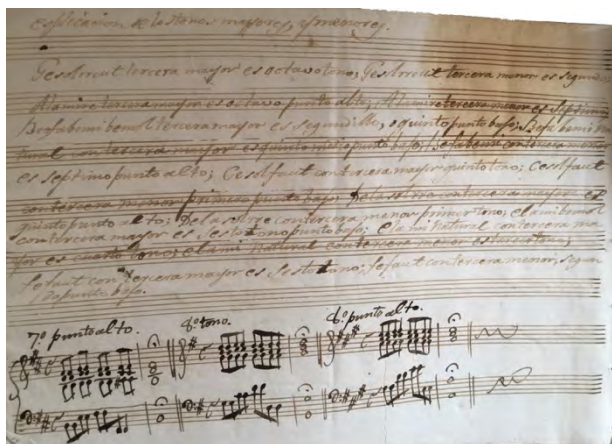 esplicacion de los tonos mayores, y menores.
Gesolreut tercera mayor es octavo tono; Gesolreut tercera menor es segundo
Alamire tercera mayor es octavo punto alto; Alamire tercera menor es septimo
Befabemi bemol tercera mayor es segundillo, o quinto punto bajo; Befabemi na
tural con tercera mayor es quinto medio punto bajo; Befabemi con tercera menor
es septimo punto alto; Cesolfaut con tercera mayor quinto tono; Cesolfaut
con tercera menor primero punto bajo; Delasolre con tercera mayor es
quinto punto alto; Delasolre con tercera menor primer tono; elami bemol
con tercera mayor es sesto tono punto bajo; elami natural con tercera ma
yor es cuarto tono; elami natural con tercera menor es
Fefaut con tercera mayor es sesto tono; fefaut con tercera menor, segun
do punto bajo.
7º. punto alto. 8º. tono. 8º. punto alto.